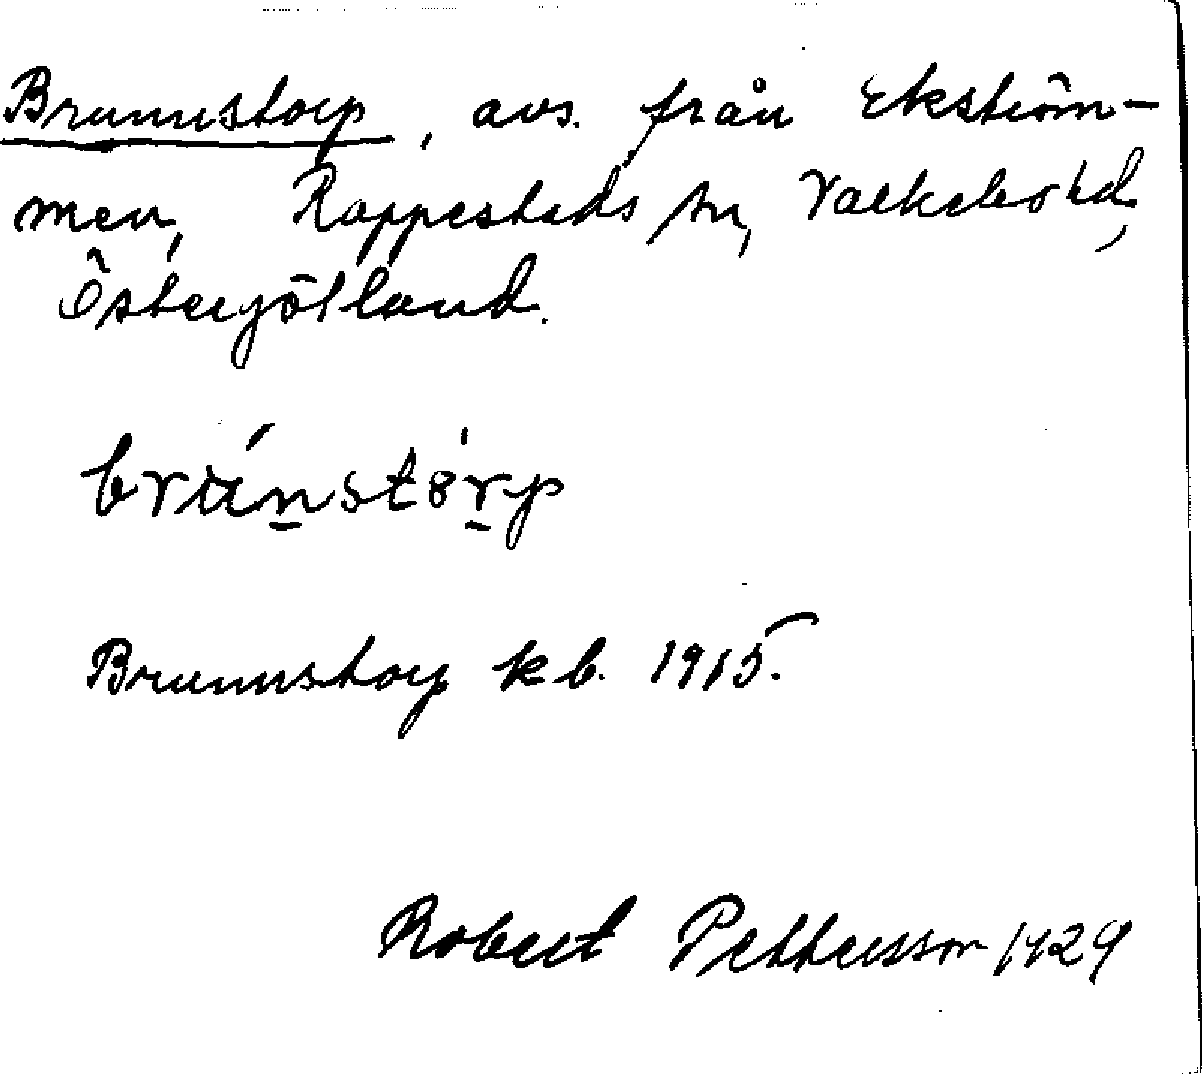 Brunnstorp, avs. från Ekström-
men, Rappestads sn, Valkebo hd,
Östergötland.
brún̠stòr̠p
Brunnstorp kb. 1915.
Robert Pettersson 1929